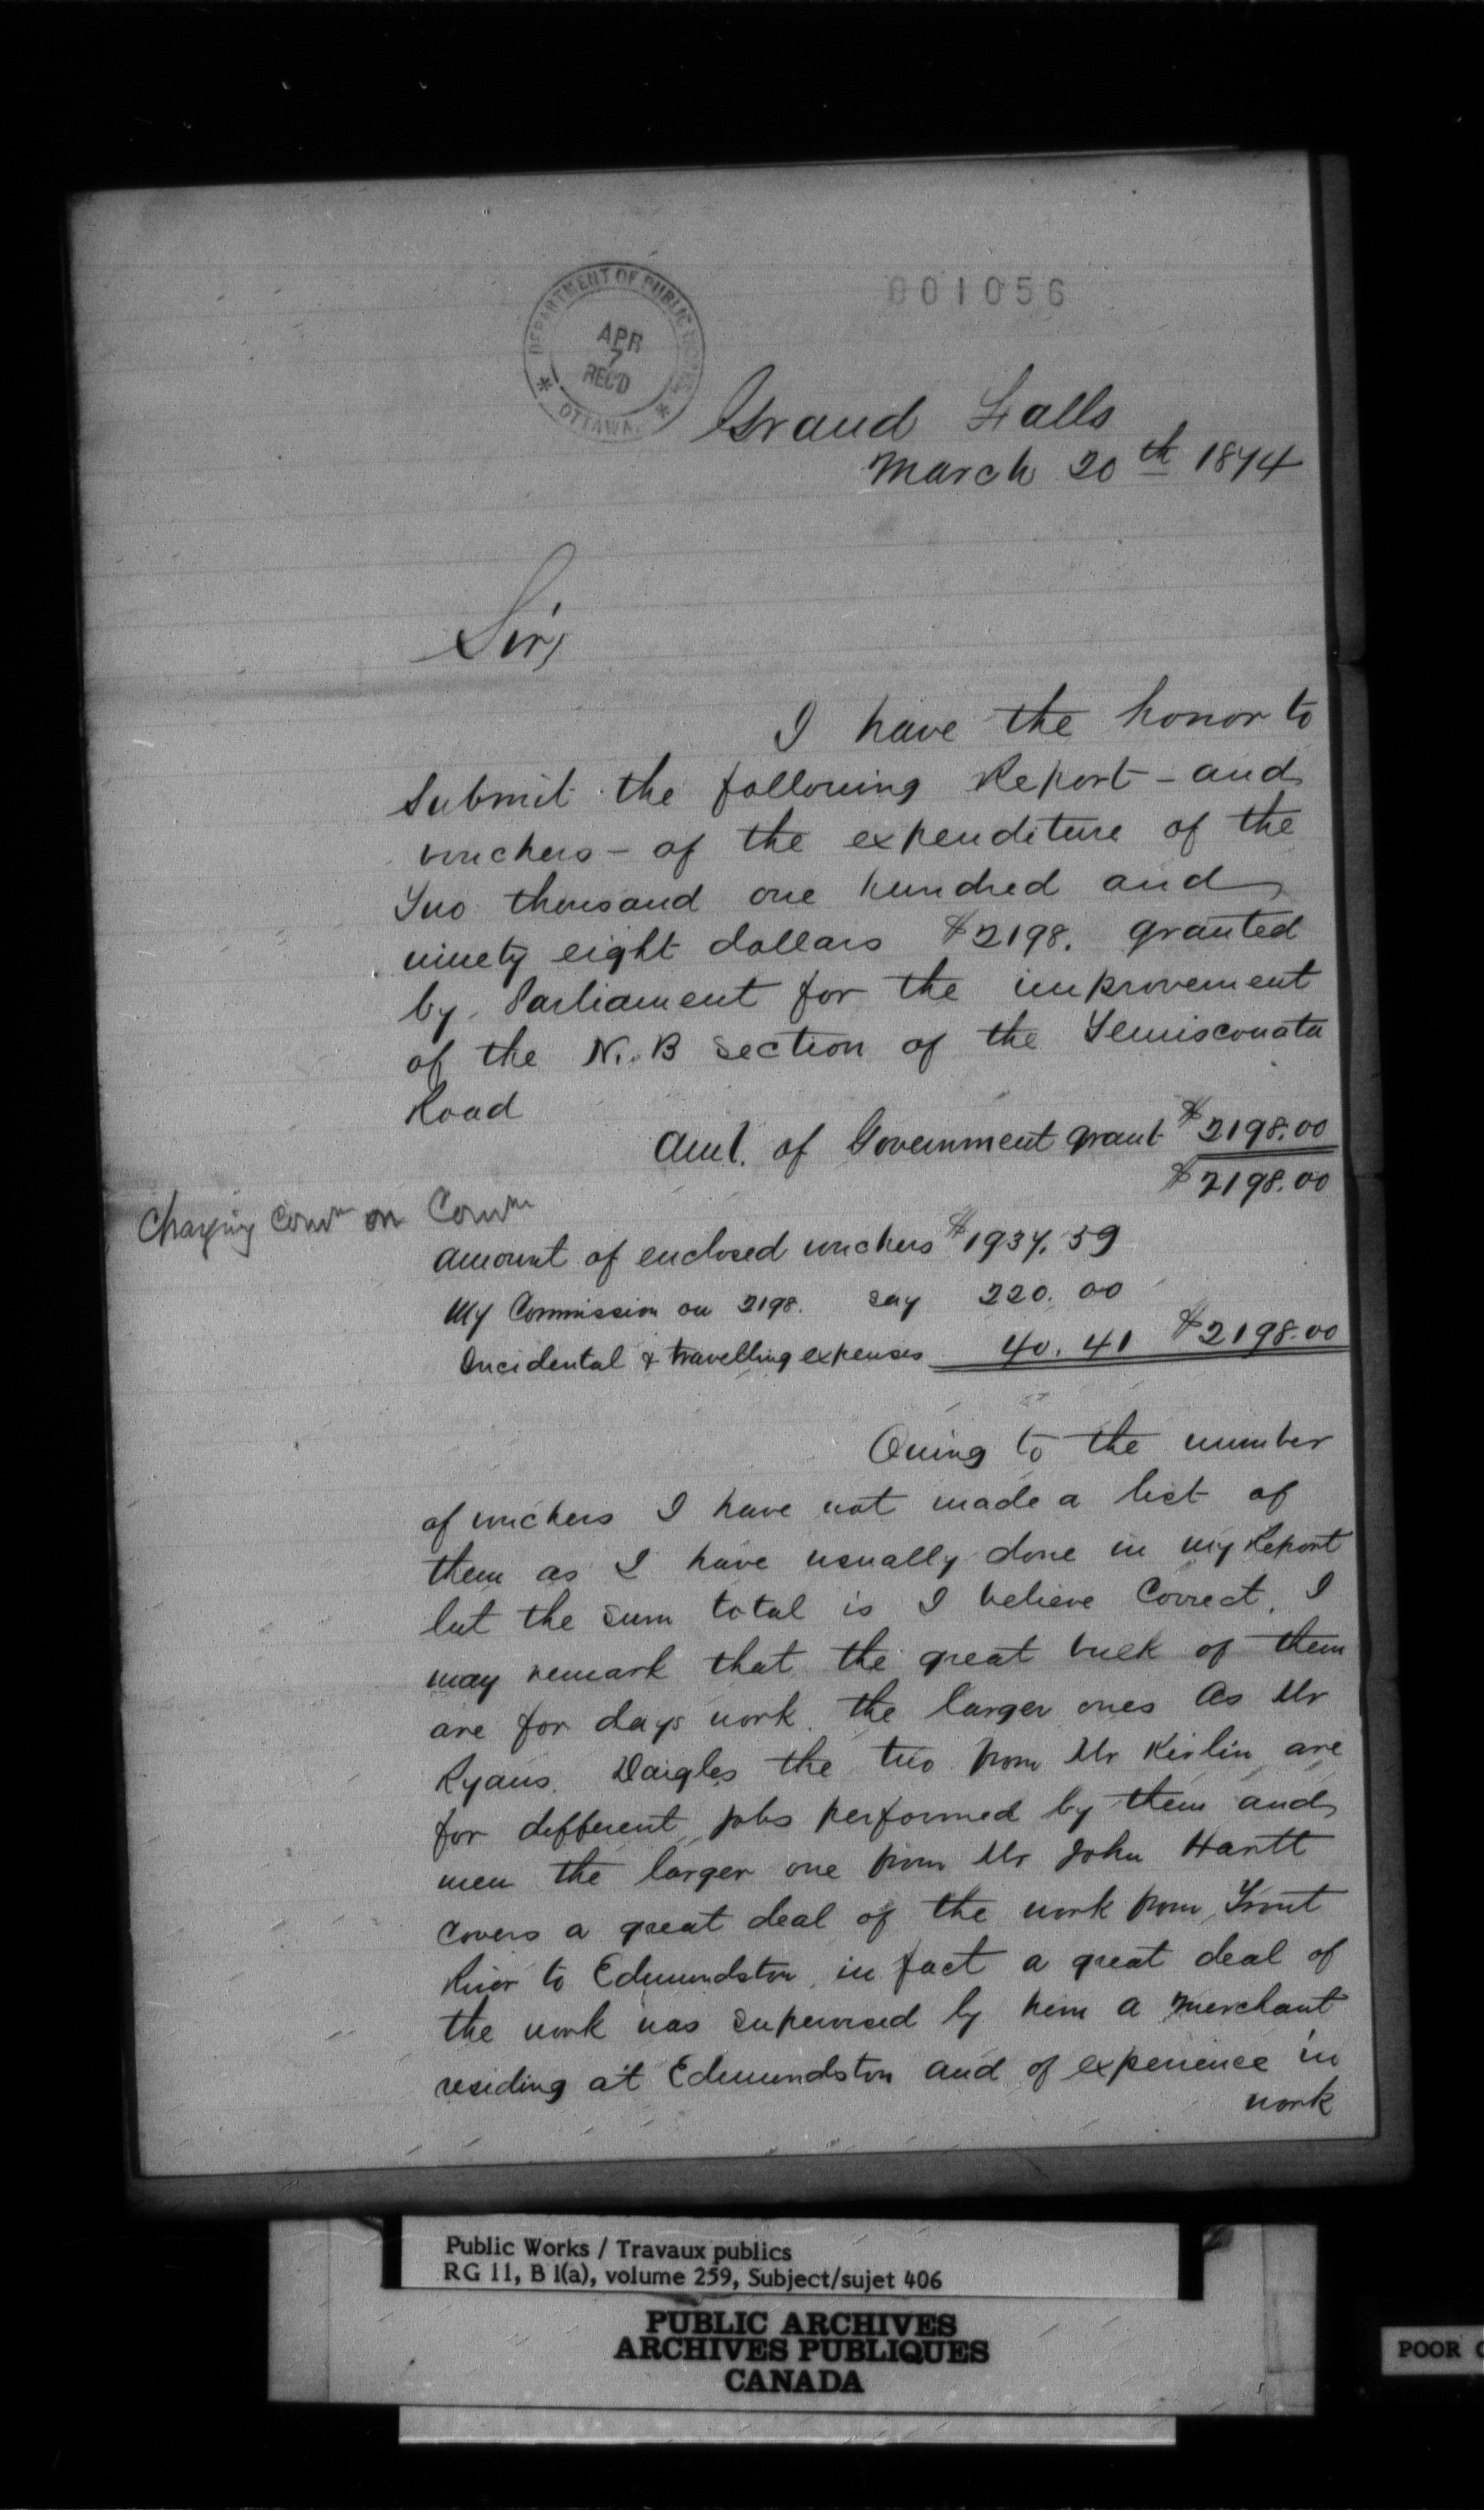 001056
DEPARTMENT OF PUBLIC WORKS
APR
7
REC'D
* OTTAWA. *
Grand Falls
March 20th 1874
Sir,
I have the honor to
Submit the following Report - and
vouchers - of the expenditure of the
Two thousand one hundred and
ninety eight dollars $2198. granted
by Parliament for the improvement
of the N.B section of the Temisconata
Road
Amt. of Government grant $2198.00
$2198.00
Charging Comn on Comn
Amount of enclosed vouchers $1937.59
My Commission on 2198. say 220.00
Incidental & travelling expenses 40.41 $2198.00
Owing to the number
of vouchers I have not made a list of
them as I have usually done in my Report
but the sum total is I believe Correct. I
may remark that the great bulk of them
are for days work. the larger ones As Mr
Ryans. Daigles the two from Mr Kirlin are
for different jobs performed by them and
men the larger one from Mr John Hartt
Covers a great deal of the work from Trout
River to Edmundston, in fact a great deal of
the work was supervised by him a Merchant
residing at Edmundston and of experience in
work
Public Works / Travaux publics
RG 11, B 1(a), volume 259, Subject/sujet 406
PUBLIC ARCHIVES
ARCHIVES PUBLIQUES
CANADA
POOR